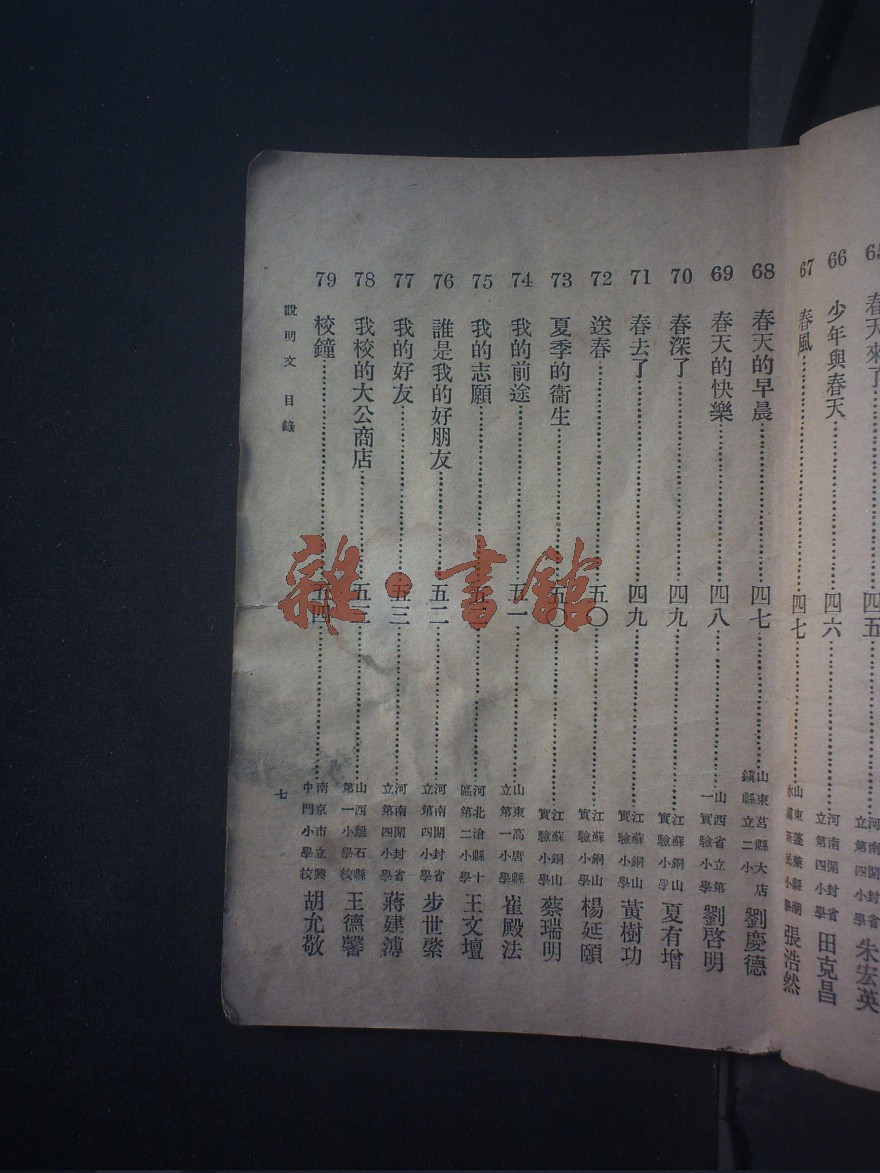 65 春天來了……四五 河南開封省立第四小學 朱宏英
66 少年與春天……四六 河南開封省立第四小學 田克昌
67 春風……四七 山東蓬萊縣潮水鎮新民小學 張浩然
68 春天的早晨……四七 山東莒縣大店鎮縣立二小 劉慶德
69 春天的快樂……四八 山西省立第一實驗小學 劉啓明
70 春深了……四九 江蘇銅山實驗小學 夏有增
71 春去了……四九 江蘇銅山實驗小學 黃樹功
72 送春……五〇 江蘇銅山實驗小學 楊延頤
73 夏季的衞生……五〇 江蘇銅山實驗小學 蔡瑞明
74 我的前途……五一 山東高唐縣立第一小學 崔殿法
75 我的志願……五二 河北滄縣十區第二小學 王文壇
76 誰是我的好朋友……五二 河南開封省立第四小學 步世棨
77 我的好友……五三 河南開封省立第四小學 蔣建溥
78 我校的大公商店……五三 山西離石縣第一小學校 王德馨
79 校鐘……五四 南京市立興中門小學校 胡允敬
說明文 目錄
七
雜·書館